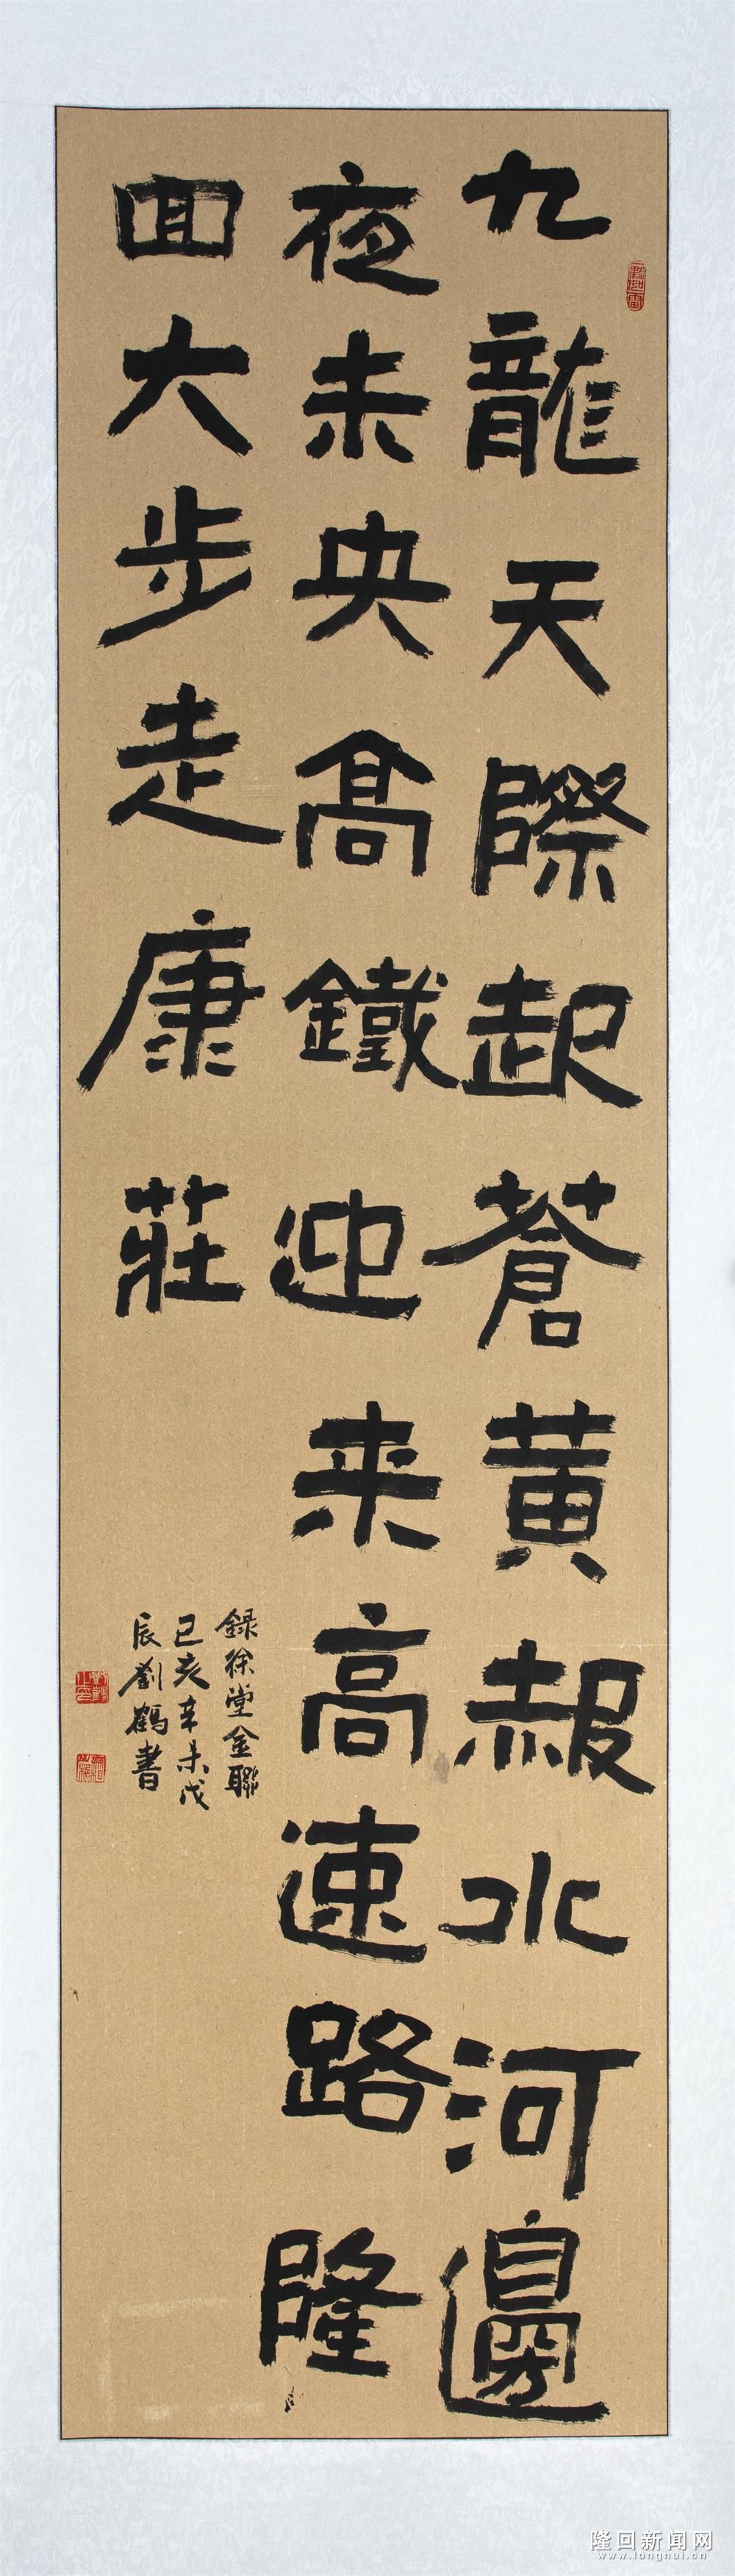 九龍天際起蒼黄赧水河邊
夜未央髙鐵迎来高速路隆
回大步走康莊
録徐堂金聯
己亥辛未戊
辰劉鶴書
隆回新闻网
www.longhui.cn